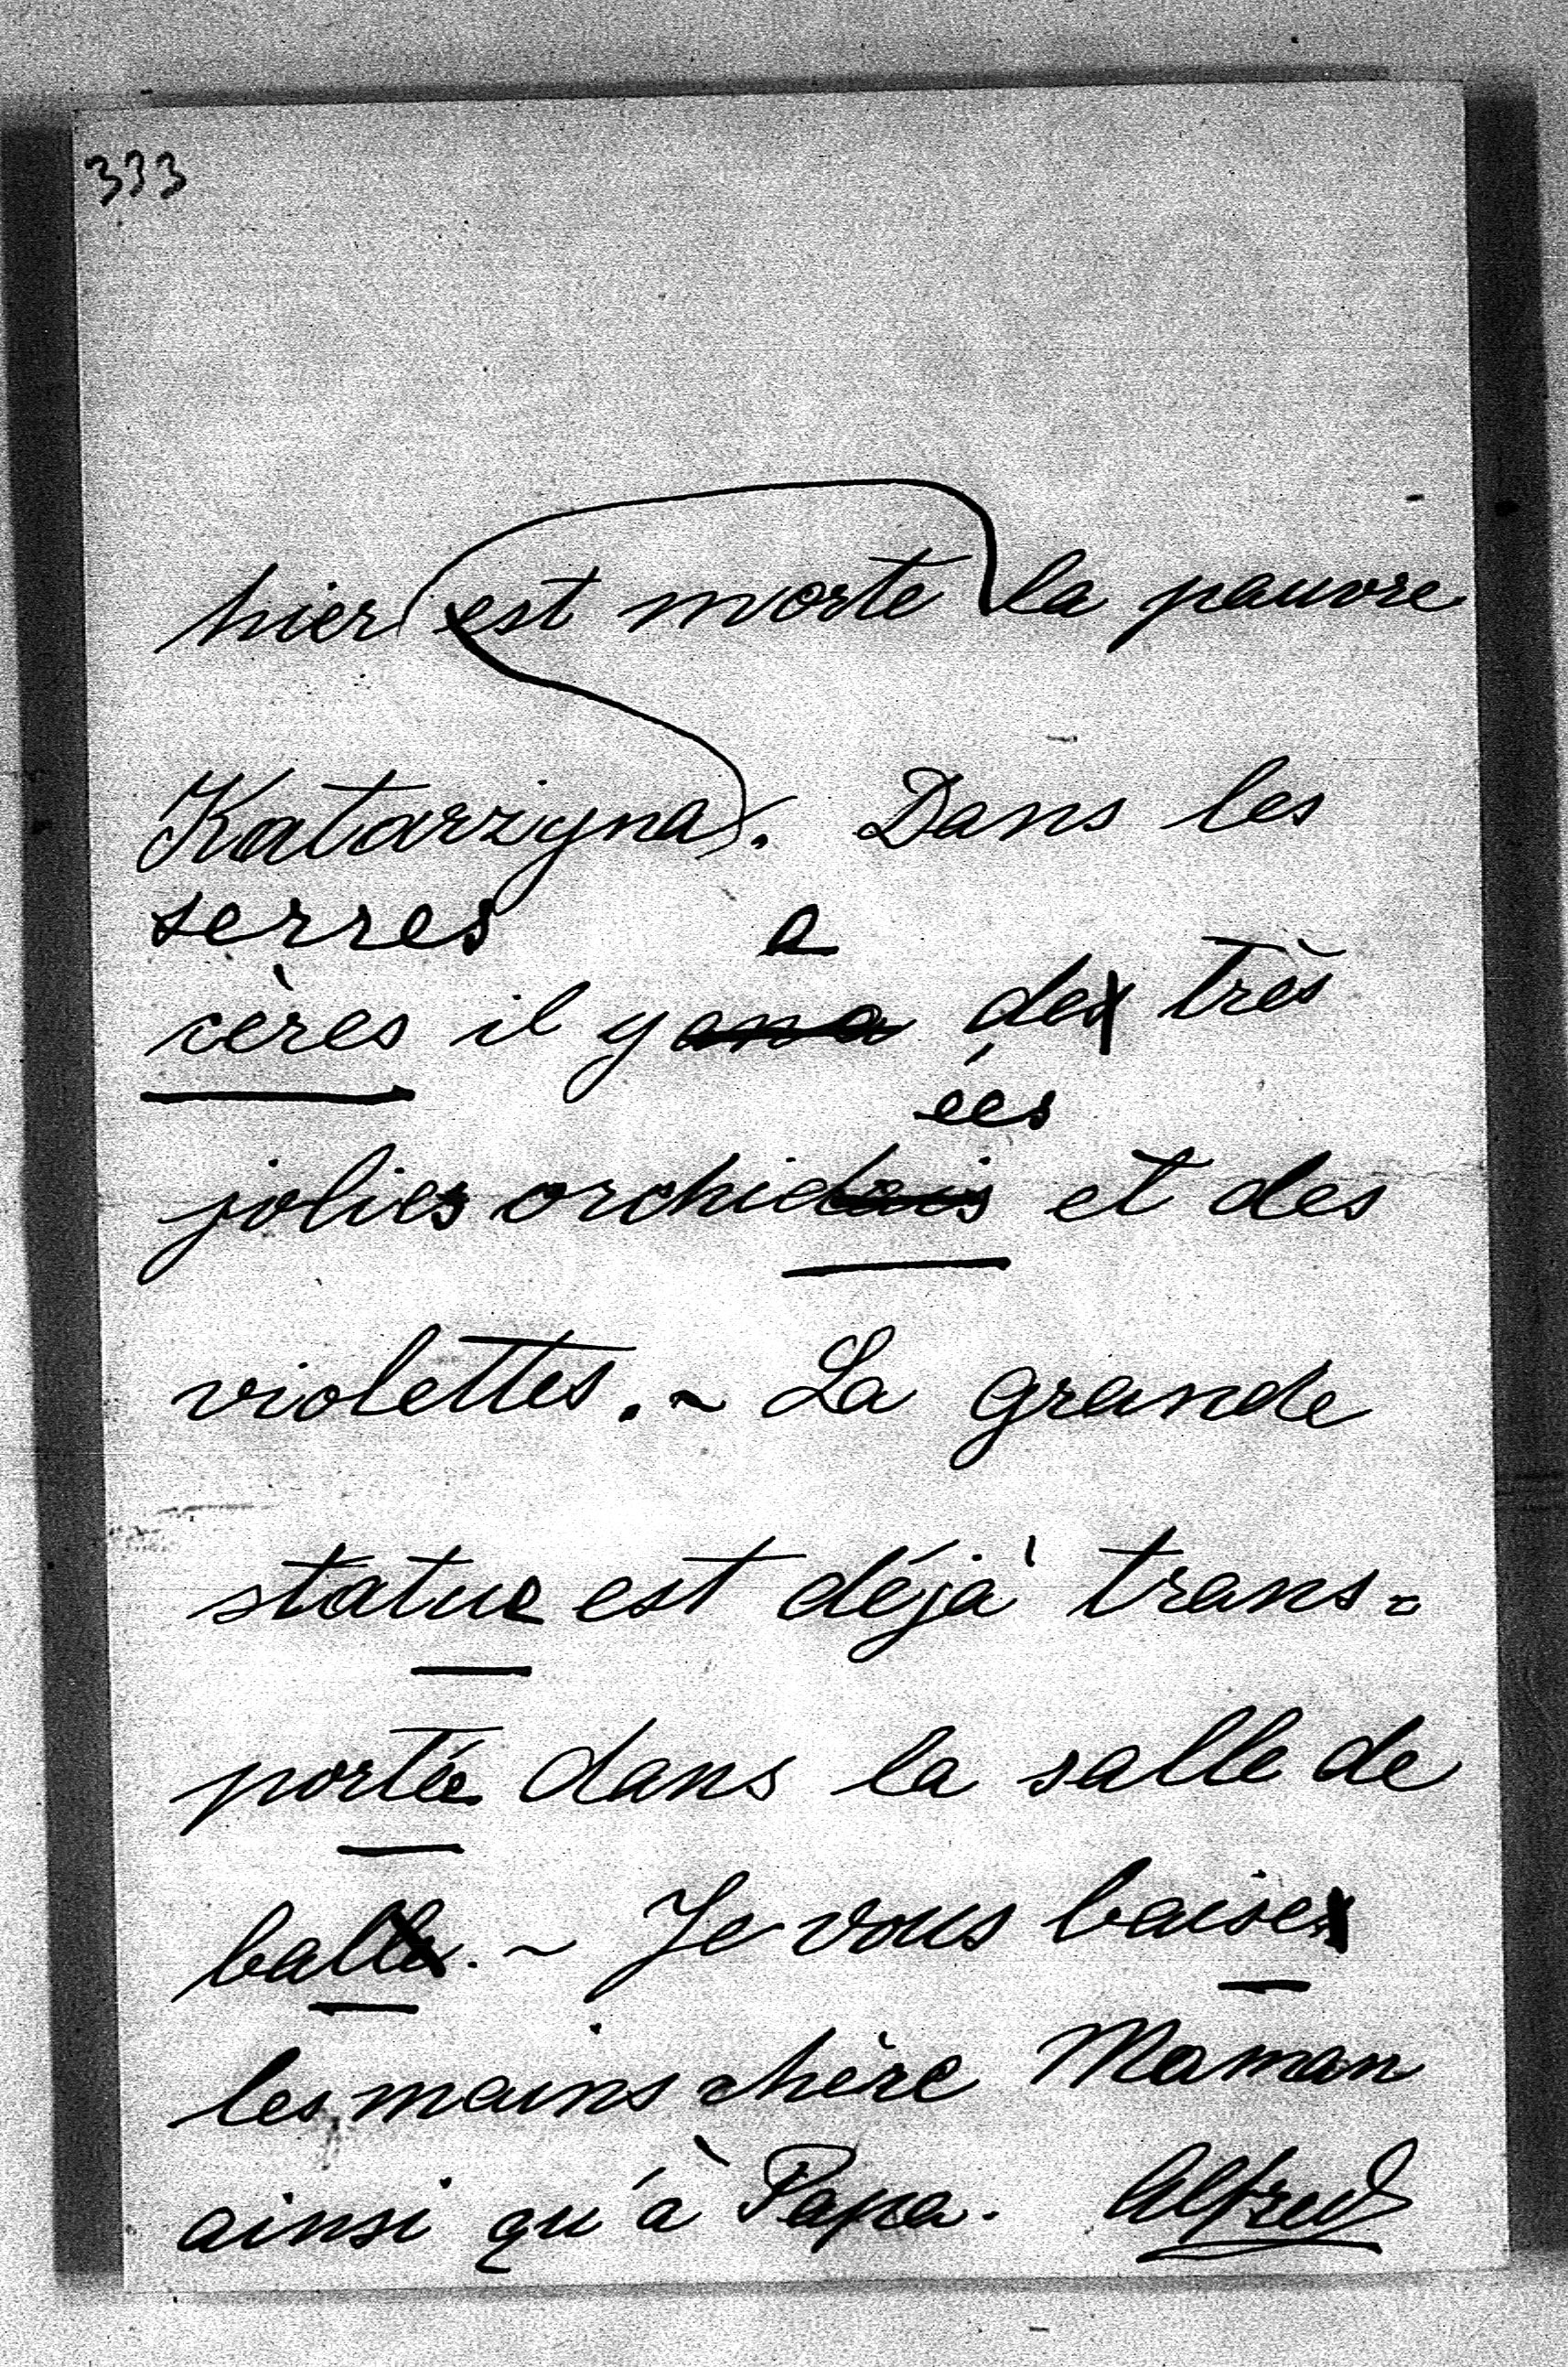 333
hier est morte la pauvre
Katarzyna. Dans les
serres a
cères il y ana des très
ées
jolies orchideis et des
violettes. ~ La grande
statue est déjà trans=
portée dans la salle de
balle. ~ Je vous baises
les mains chère Maman
ainsi qu'à Papa. Alfred